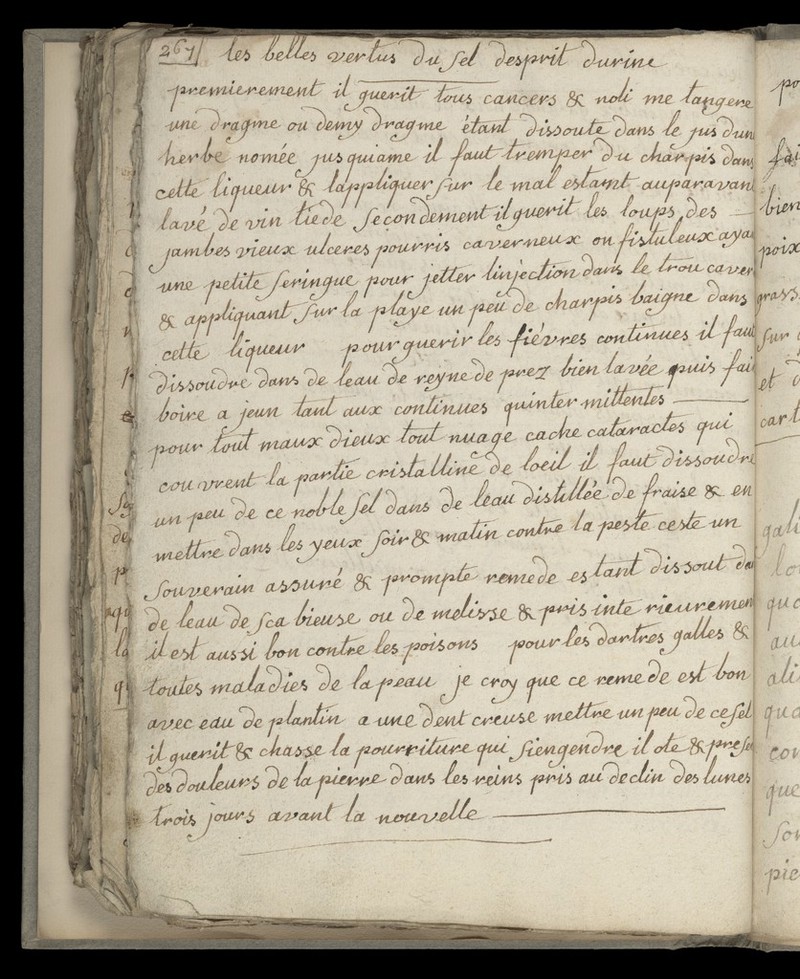 267 les belles vertus du sel desprit durine
premierement il guerit tous cancers & noli me tangere
une dragme ou demy dragme étant dissoute dans le jus dun
herbe nomée jusquiame il faut tremper du charpis dans
cette liqueur & lappliquer sur le mal estamt auparavan
lavé de vin tiede secondement il guerit les loups des
jambes vieux ulceres pourris caverneux ou fistuleux aya
une petite seringue pour jetter linjection dans le trou caver
& appliquant sur la playe un peu de charpis baigne dans
cette liqueur pour guerir les fiévres continues il faut
dissoudre dans de leau de reyne de prez bien lavée puis fai
boire a jeun tant aux continues quinter mittentes
pour tout maux dieux tout nuage cache cataractes qui
couvrent la partie cristalline de loeil il faut dissoudre
un peu de ce noble sel dans de leau distillée de fraise & en
mettre dans les yeux soir & matin contre la peste ceste un
souverain assuré & prompte remede estant dissout da
de leau de sca bieuse ou de melisse & pris inte rieurement
il est aussi bon contre les poisons pour les dartres galles &
toutes maladies de la peau je croy que ce remede est bon
avec eau de plantin a une dent creuse mettre un peu de ce sel
il guerit & chasse la pourriture qui siengendre il ote & prese
des douleurs de la pierre dans les reins pris au declin des lunes
trois jours avant la nouvelle